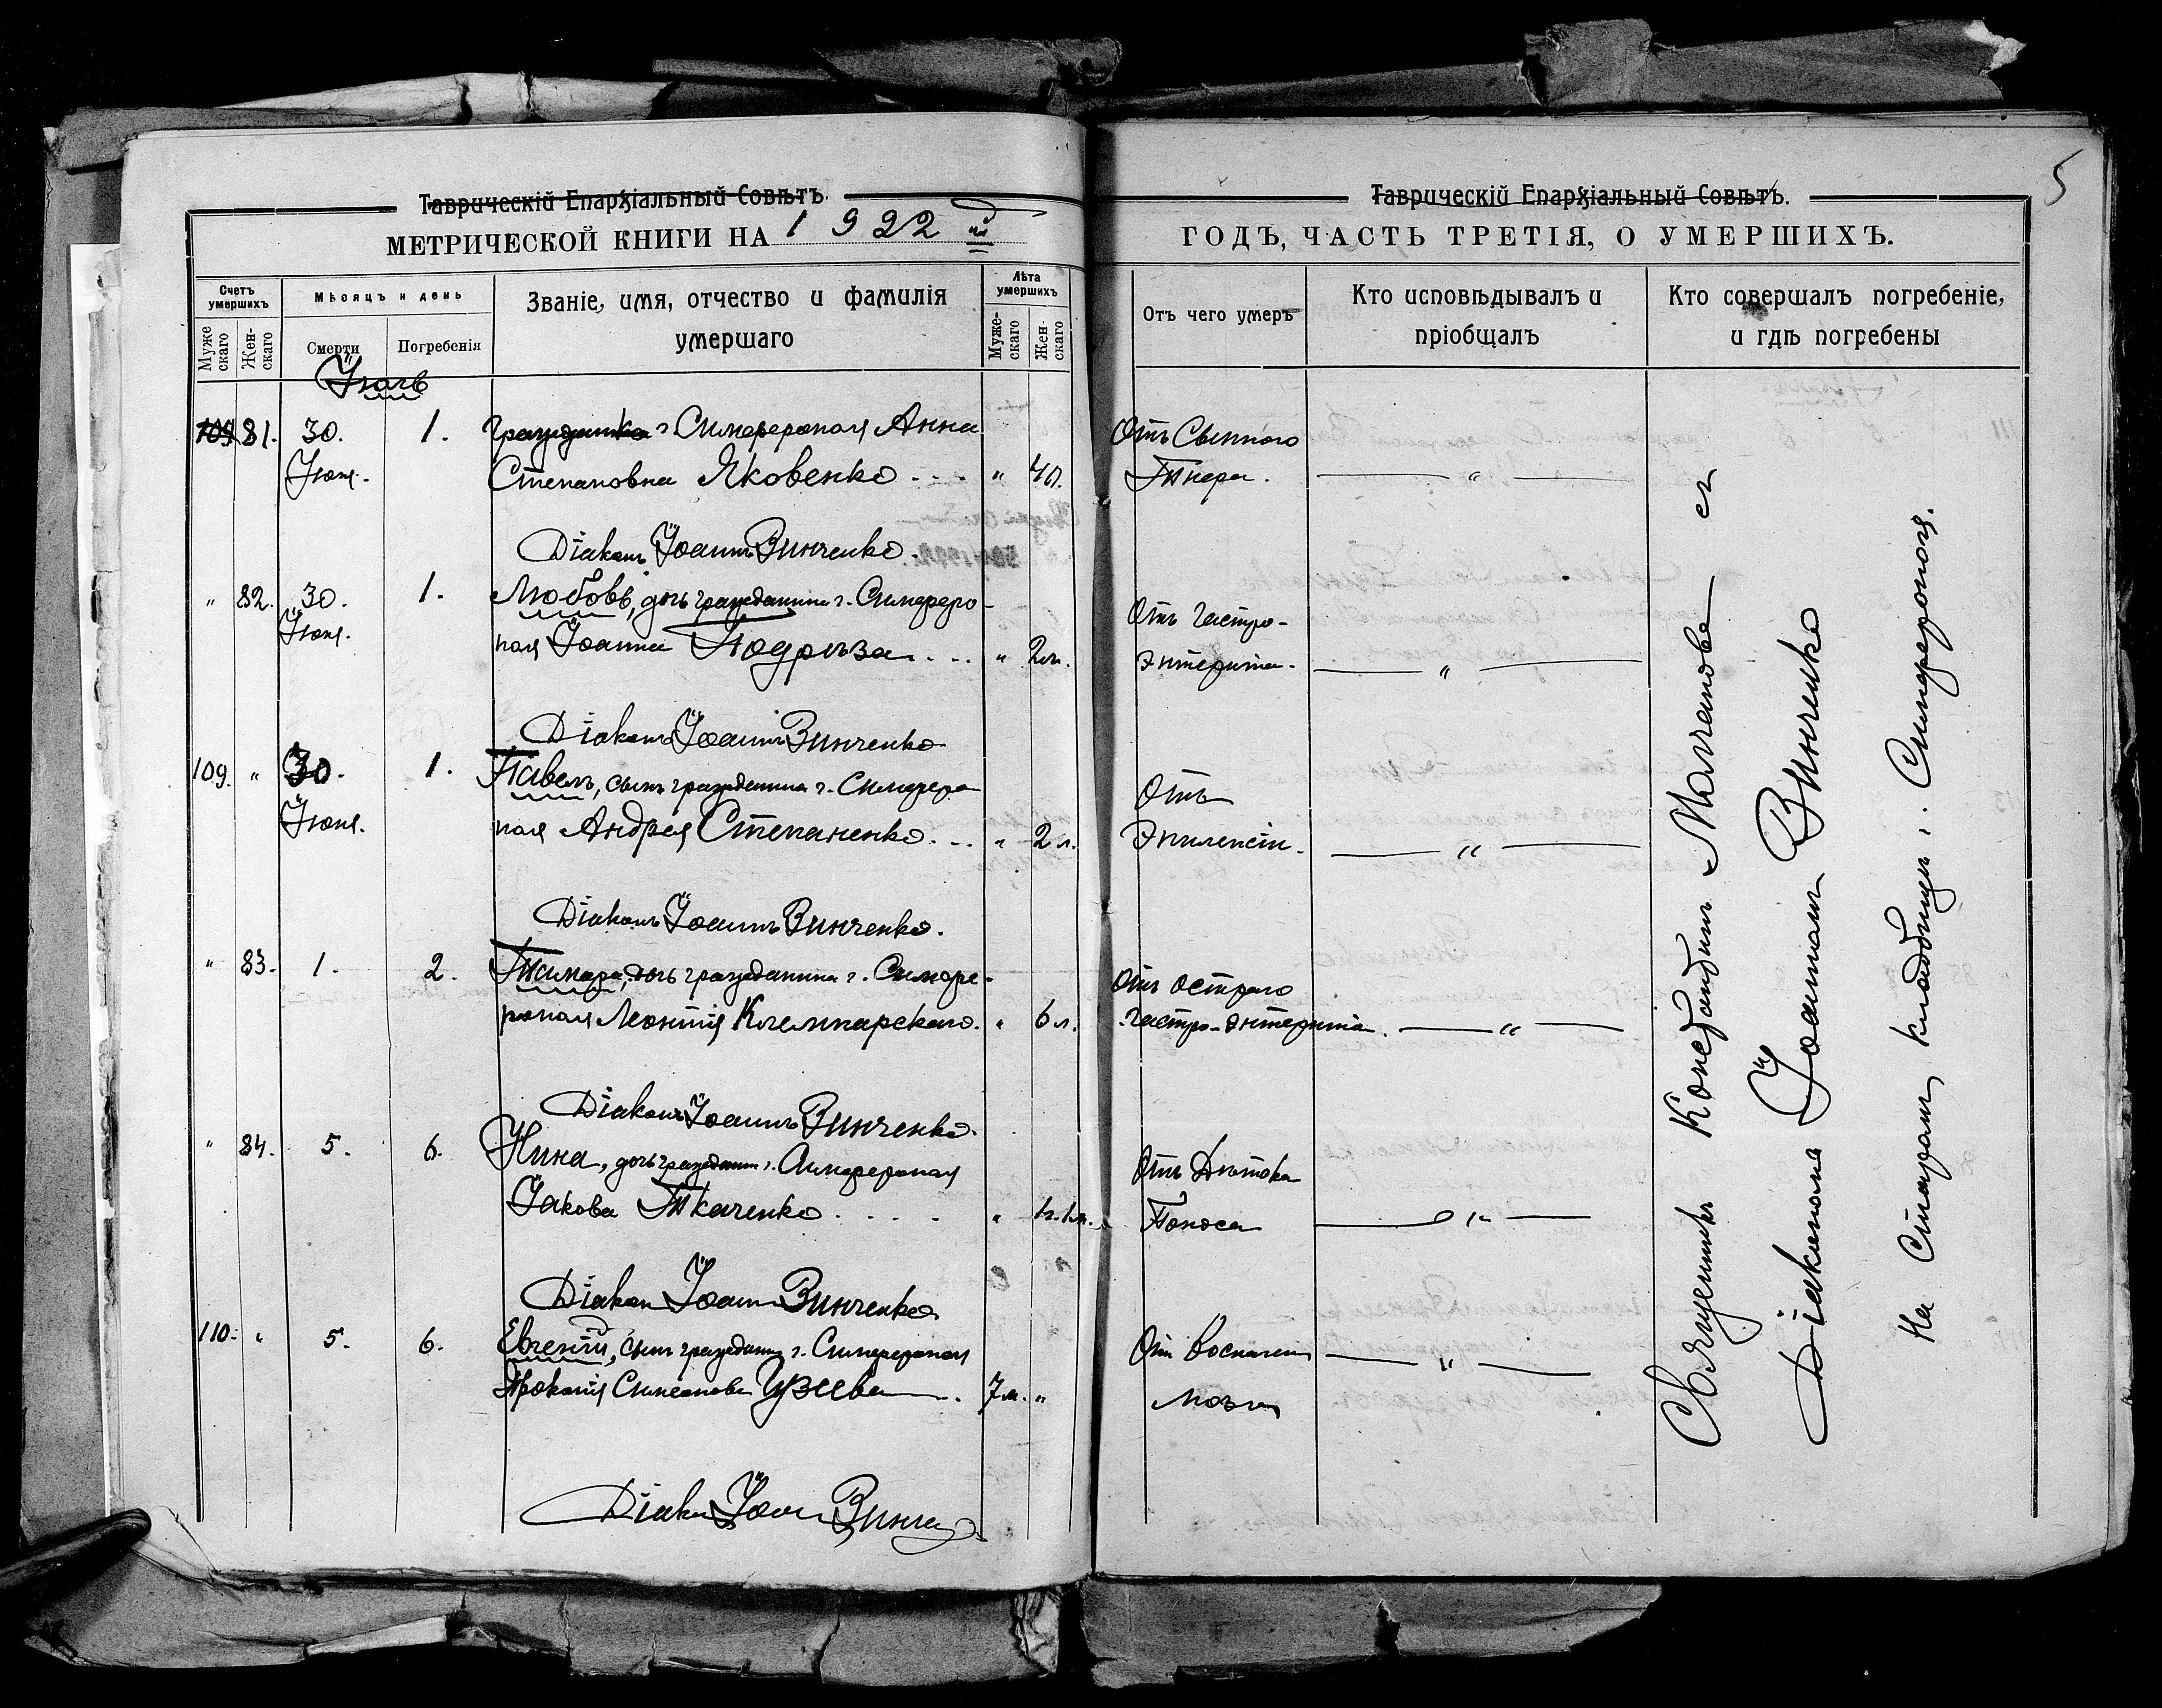 Таврическій Епархіальный Совѣтъ.
МЕТРИЧЕСКОЙ КНИГИ НА 1922 й
Счетъ умершихъ
Мѣсяцъ и день
Званіе, имя, отчество и фамилія умершаго
Лѣта умершихъ
Мужескаго
Женскаго
Смерти
Погребенія
Мужескаго
Женскаго
Іюль
109 81. 30. 1. Гражданка г. Симферополя Анна
Іюня. Степановна Яковенко . . . „ 40.
Діаконъ Іоаннъ Винченко.
„ 82. 30. 1. Любовь, дочь гражданина г. Симферо-
Іюня. поля Іоанна . . . „ 2
Діаконъ Іоаннъ Винченко
109. „ 30. 1. Павелъ, сынъ гражданина г. Симферо
Іюня. поля Андрея Степаненко . . . „ 2 л.
Діаконъ Іоаннъ Винченко.
„ 83. 1. 2. Тамара, дочь гражданина г. Симфе-
рополя Леонтія Клемпарскаго. „ 6 л.
Діаконъ Іоаннъ Винченко.
„ 84. 5. 6. Нина, дочь граждан г. Симферополя
Іакова Ткаченко . . . . „ 1г. 1м.
Діакон Іоанн Винченко
110. „ 5. 6. Евгеній, сынъ гражданина г. Симферополя
Прокопія Симеонова . 7 м. „
Діакон Іоан Винче
Таврическій Епархіальный Совѣтъ.
5
ГОДЪ, ЧАСТЬ ТРЕТІЯ, О УМЕРШИХЪ.
Отъ чего умеръ
Кто исповѣдывалъ и пріобщалъ
Кто совершалъ погребеніе, и гдѣ погребены
Отъ Сыпного
Тифа. — „ —
Отъ гастро-
энтерита. — „ —
Отъ
Эпилепсіи. — „ —
Отъ остраго
гастро-энтерита. — „ —
Отъ Дѣтскаго
Поноса — „ —
Отъ Воспален — „ —
мозга
Священникъ Константинъ съ
Діакономъ Іоанномъ Винченко
На Старомъ кладбищѣ г. Симферополя.